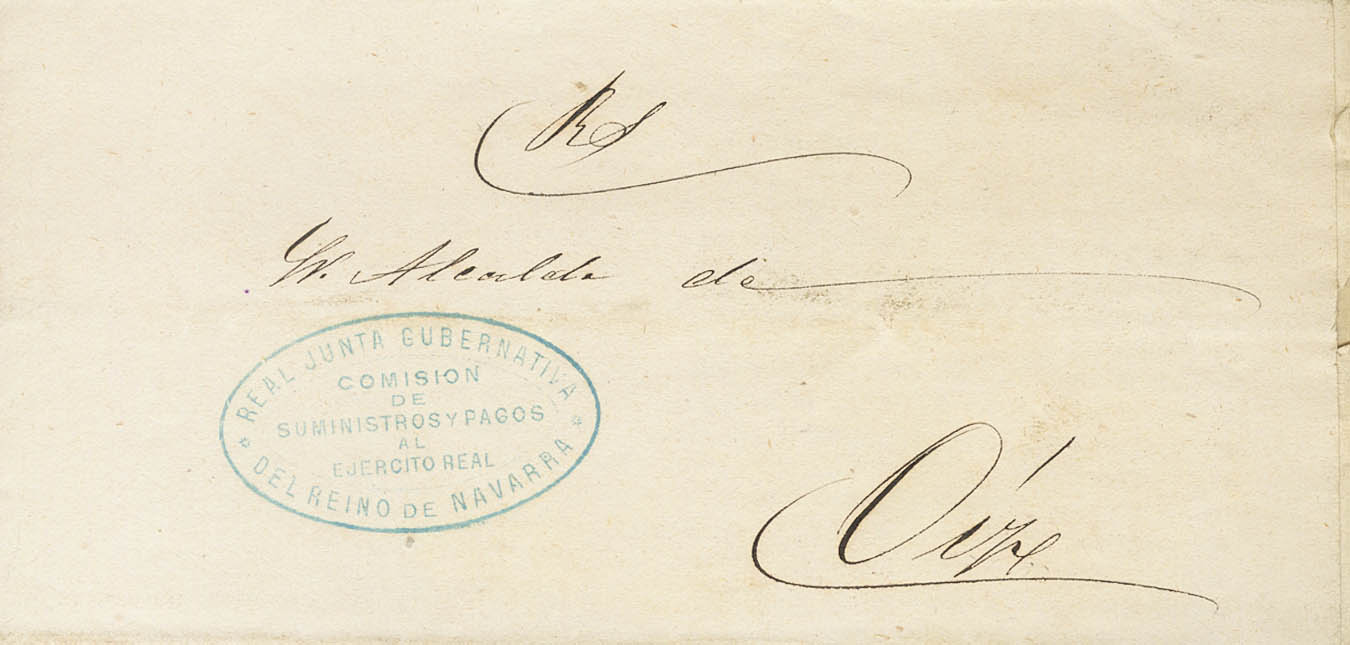 RS
Sr. Alcalde de
REAL JUNTA GUBERNATIVA
COMISION
DE
SUMINISTROS Y PAGOS
AL
EJERCITO REAL
DEL REINO DE NAVARRA